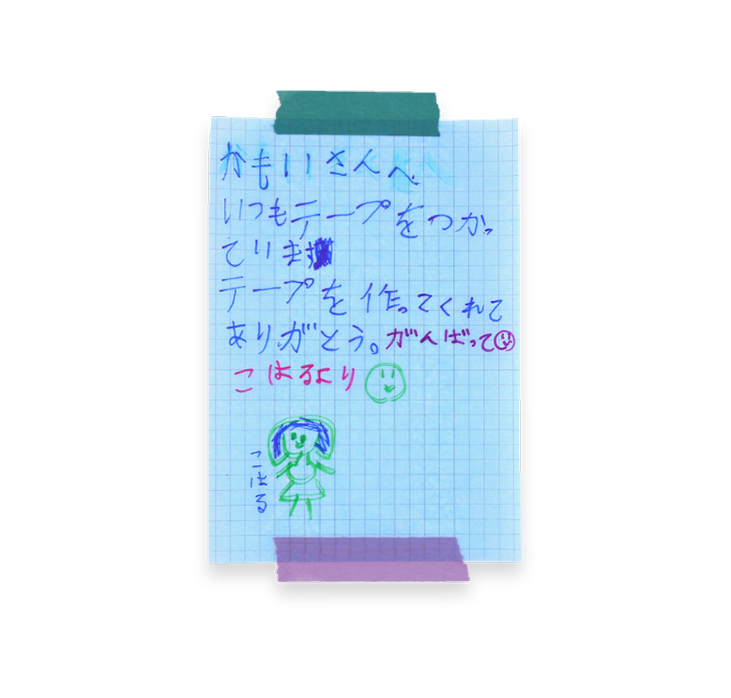 かもいさんへ
いつもテープをつかっ
ています
テープを作ってくれて
ありがとう。がんばって
こはるより
こはる